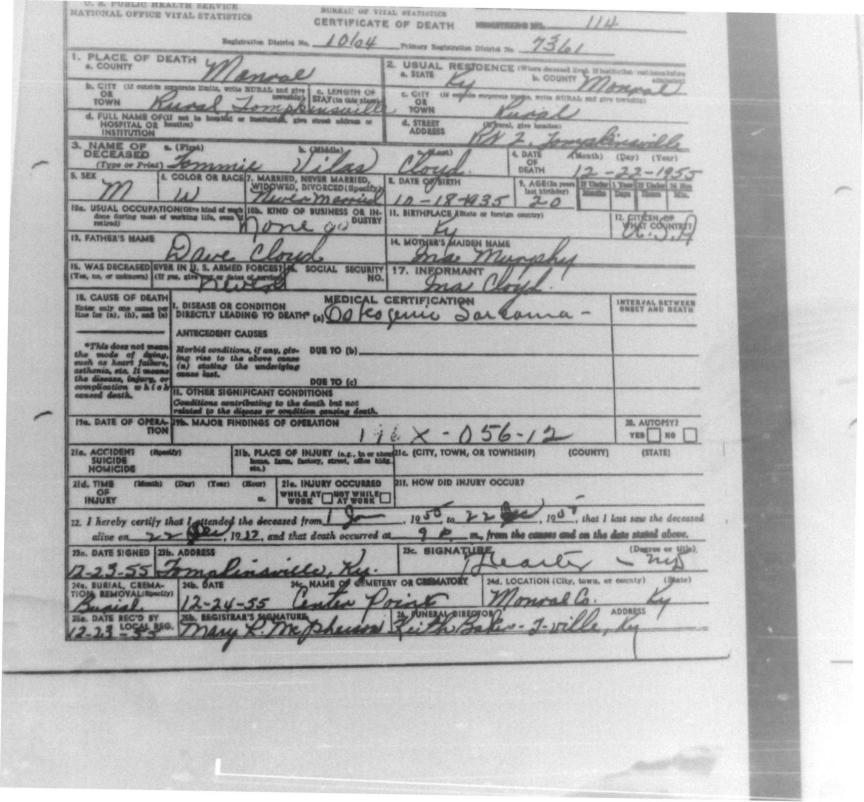 U. S. PUBLIC HEALTH SERVICE BUREAU OF VITAL STATISTICS
NATIONAL OFFICE VITAL STATISTICS CERTIFICATE OF DEATH REGISTRAR'S NO. 114
Registration District No. 1004 Primary Registration District No. 7361
1. PLACE OF DEATH 2. USUAL RESIDENCE (Where deceased lived. If institution: residence before admission)
a. COUNTY Monroe a. STATE Ky b. COUNTY Monroe
b. CITY (If outside corporate limits, write RURAL and give township) c. LENGTH OF STAY (in this place) c. CITY (If outside corporate limits, write RURAL and give township)
OR TOWN Rural Tompkinsville OR TOWN Rural
d. FULL NAME OF (If not in hospital or institution, give street address or location) HOSPITAL OR INSTITUTION d. STREET ADDRESS (If rural, give location) R# 2, Tompkinsville
3. NAME OF DECEASED (Type or Print) a. (First) b. (Middle) c. (Last) 4. DATE OF DEATH (Month) (Day) (Year)
Tommie Vilas Cloyd 12-22-1955
5. SEX 6. COLOR OR RACE 7. MARRIED, NEVER MARRIED, WIDOWED, DIVORCED (Specify) 8. DATE OF BIRTH 9. AGE (In years last birthday) If Under 1 Year Months Days If Under 24 Hrs Hours Min.
M W Never Married 10-18-1935 20
10a. USUAL OCCUPATION (Give kind of work done during most of working life, even if retired) 10b. KIND OF BUSINESS OR INDUSTRY 11. BIRTHPLACE (State or foreign country) 12. CITIZEN OF WHAT COUNTRY?
None Ky U.S.A
13. FATHER'S NAME 14. MOTHER'S MAIDEN NAME
Dave Cloyd Ina Murphy
15. WAS DECEASED EVER IN U. S. ARMED FORCES? (Yes, no, or unknown) (If yes, give war or dates of service) 16. SOCIAL SECURITY NO. 17. INFORMANT
Never Ina Cloyd
18. CAUSE OF DEATH MEDICAL CERTIFICATION INTERVAL BETWEEN ONSET AND DEATH
Enter only one cause per line for (a), (b), and (c) I. DISEASE OR CONDITION DIRECTLY LEADING TO DEATH* (a) Osteogenic Sarcoma -
ANTECEDENT CAUSES
*This does not mean the mode of dying, such as heart failure, asthenia, etc. It means the disease, injury, or complication which caused death.
Morbid conditions, if any, giving rise to the above cause (a) stating the underlying cause last. DUE TO (b)
DUE TO (c)
II. OTHER SIGNIFICANT CONDITIONS
Conditions contributing to the death but not related to the disease or condition causing death.
19a. DATE OF OPERATION 19b. MAJOR FINDINGS OF OPERATION 20. AUTOPSY?
X-056-12 YES NO
21a. ACCIDENT SUICIDE HOMICIDE (Specify) 21b. PLACE OF INJURY (e.g., in or about home, farm, factory, street, office bldg. etc.) 21c. (CITY, TOWN, OR TOWNSHIP) (COUNTY) (STATE)
21d. TIME OF INJURY (Month) (Day) (Year) (Hour) m. 21e. INJURY OCCURRED WHILE AT WORK NOT WHILE AT WORK 21f. HOW DID INJURY OCCUR?
22. I hereby certify that I attended the deceased from 1 Jan, 1955 to 22 Dec, 19, that I last saw the deceased
alive on 22 Dec, 19, and that death occurred at 9 P m., from the causes and on the date stated above.
23a. DATE SIGNED 23b. ADDRESS 23c. SIGNATURE (Degree or title)
12-23-55 Tompkinsville, Ky. MD
24a. BURIAL, CREMATION, REMOVAL (Specify) 24b. DATE 24c. NAME OF CEMETERY OR CREMATORY 24d. LOCATION (City, town, or county) (State)
Burial 12-24-55 Center Point Monroe Co. Ky
25a. DATE REC'D BY LOCAL REG. 25b. REGISTRAR'S SIGNATURE 26. FUNERAL DIRECTOR ADDRESS
12-23-55 Mary L. McPherson Keith Baker - T-ville, Ky